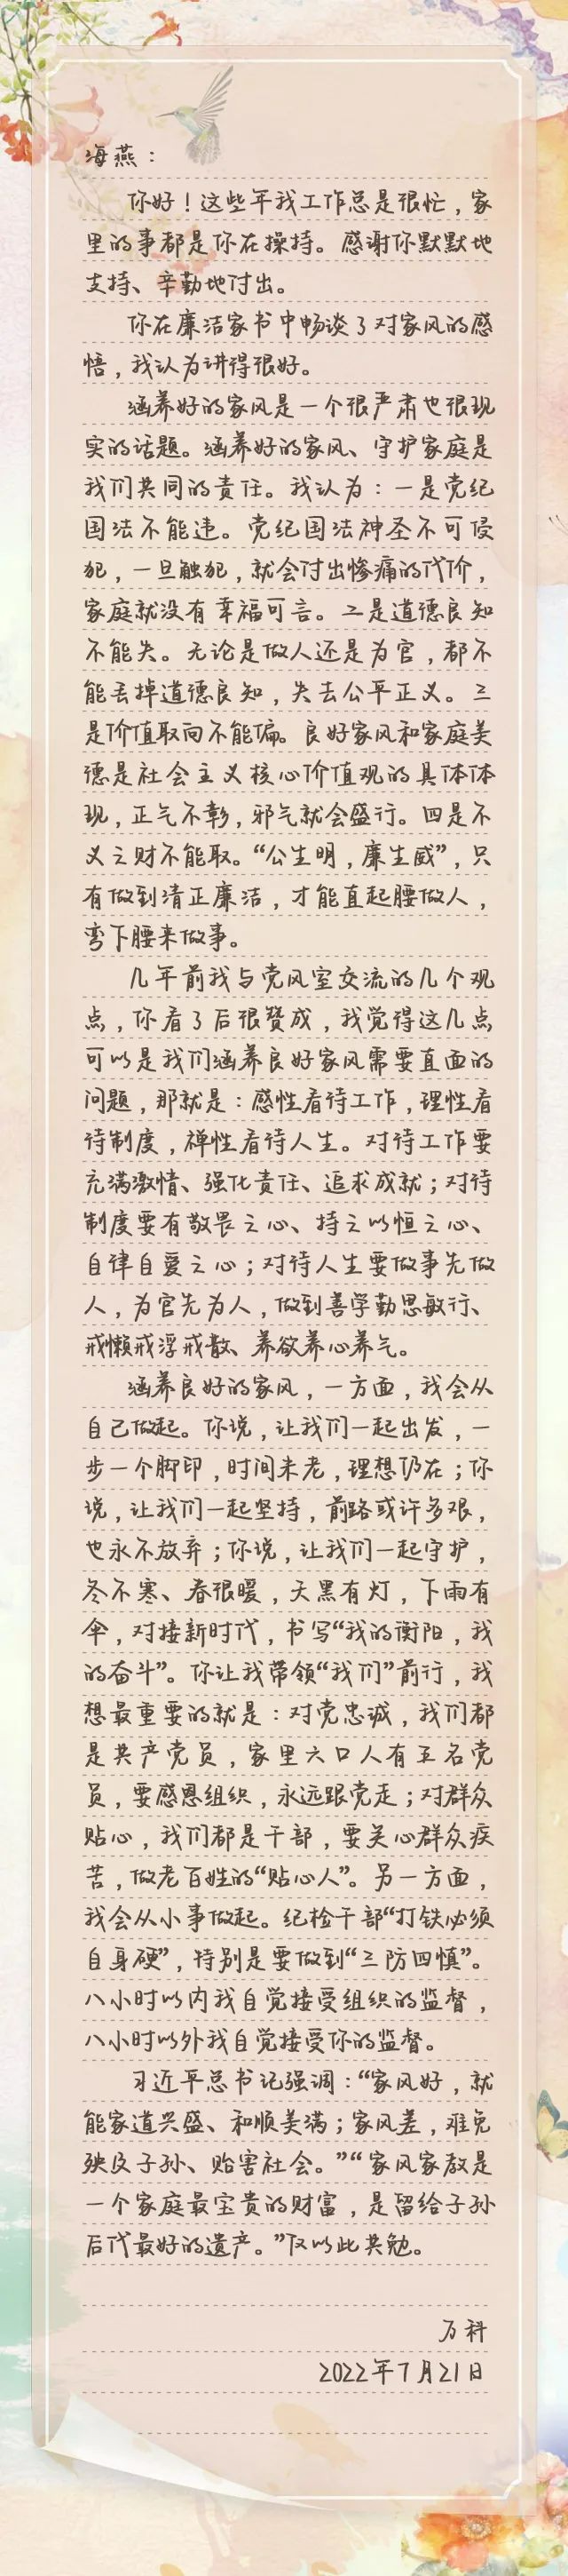 海燕：
你好！这些年我工作总是很忙，家
里的事都是你在操持。感谢你默默地
支持、辛勤地付出。
你在廉洁家书中畅谈了对家风的感
悟，我认为讲得很好。
涵养好的家风是一个很严肃也很现
实的话题。涵养好的家风、守护家庭是
我们共同的责任。我认为：一是党纪
国法不能违。党纪国法神圣不可侵
犯，一旦触犯，就会付出惨痛的代价，
家庭就没有幸福可言。二是道德良知
不能失。无论是做人还是为官，都不
能丢掉道德良知，失去公平正义。三
是价值取向不能偏。良好家风和家庭美
德是社会主义核心价值观的具体体
现，正气不彰，邪气就会盛行。四是不
义之财不能取。“公生明，廉生威”，只
有做到清正廉洁，才能直起腰做人，
弯下腰来做事。
几年前我与党风室交流的几个观
点，你看了后很赞成，我觉得这几点
可以是我们涵养良好家风需要直面的
问题，那就是：感性看待工作，理性看
待制度，禅性看待人生。对待工作要
充满激情、强化责任、追求成就；对待
制度要有敬畏之心、持之以恒之心、
自律自爱之心；对待人生要做事先做
人，为官先为人，做到善学勤思敏行、
戒懒戒浮戒散、养欲养心养气。
涵养良好的家风，一方面，我会从
自己做起。你说，让我们一起出发，一
步一个脚印，时间未老，理想仍在；你
说，让我们一起坚持，前路或许多艰，
也永不放弃；你说，让我们一起守护，
冬不寒、春很暖，天黑有灯，下雨有
伞，对接新时代，书写“我的衡阳，我
的奋斗”。你让我带领“我们”前行，我
想最重要的就是：对党忠诚，我们都
是共产党员，家里六口人有五名党
员，要感恩组织，永远跟党走；对群众
贴心，我们都是干部，要关心群众疾
苦，做老百姓的“贴心人”。另一方面，
我会从小事做起。纪检干部“打铁必须
自身硬”，特别是要做到“三防四慎”。
八小时以内我自觉接受组织的监督，
八小时以外我自觉接受你的监督。
习近平总书记强调：“家风好，就
能家道兴盛、和顺美满；家风差，难免
殃及子孙、贻害社会。”“家风家教是
一个家庭最宝贵的财富，是留给子孙
后代最好的遗产。”仅以此共勉。
万科
2022年7月21日